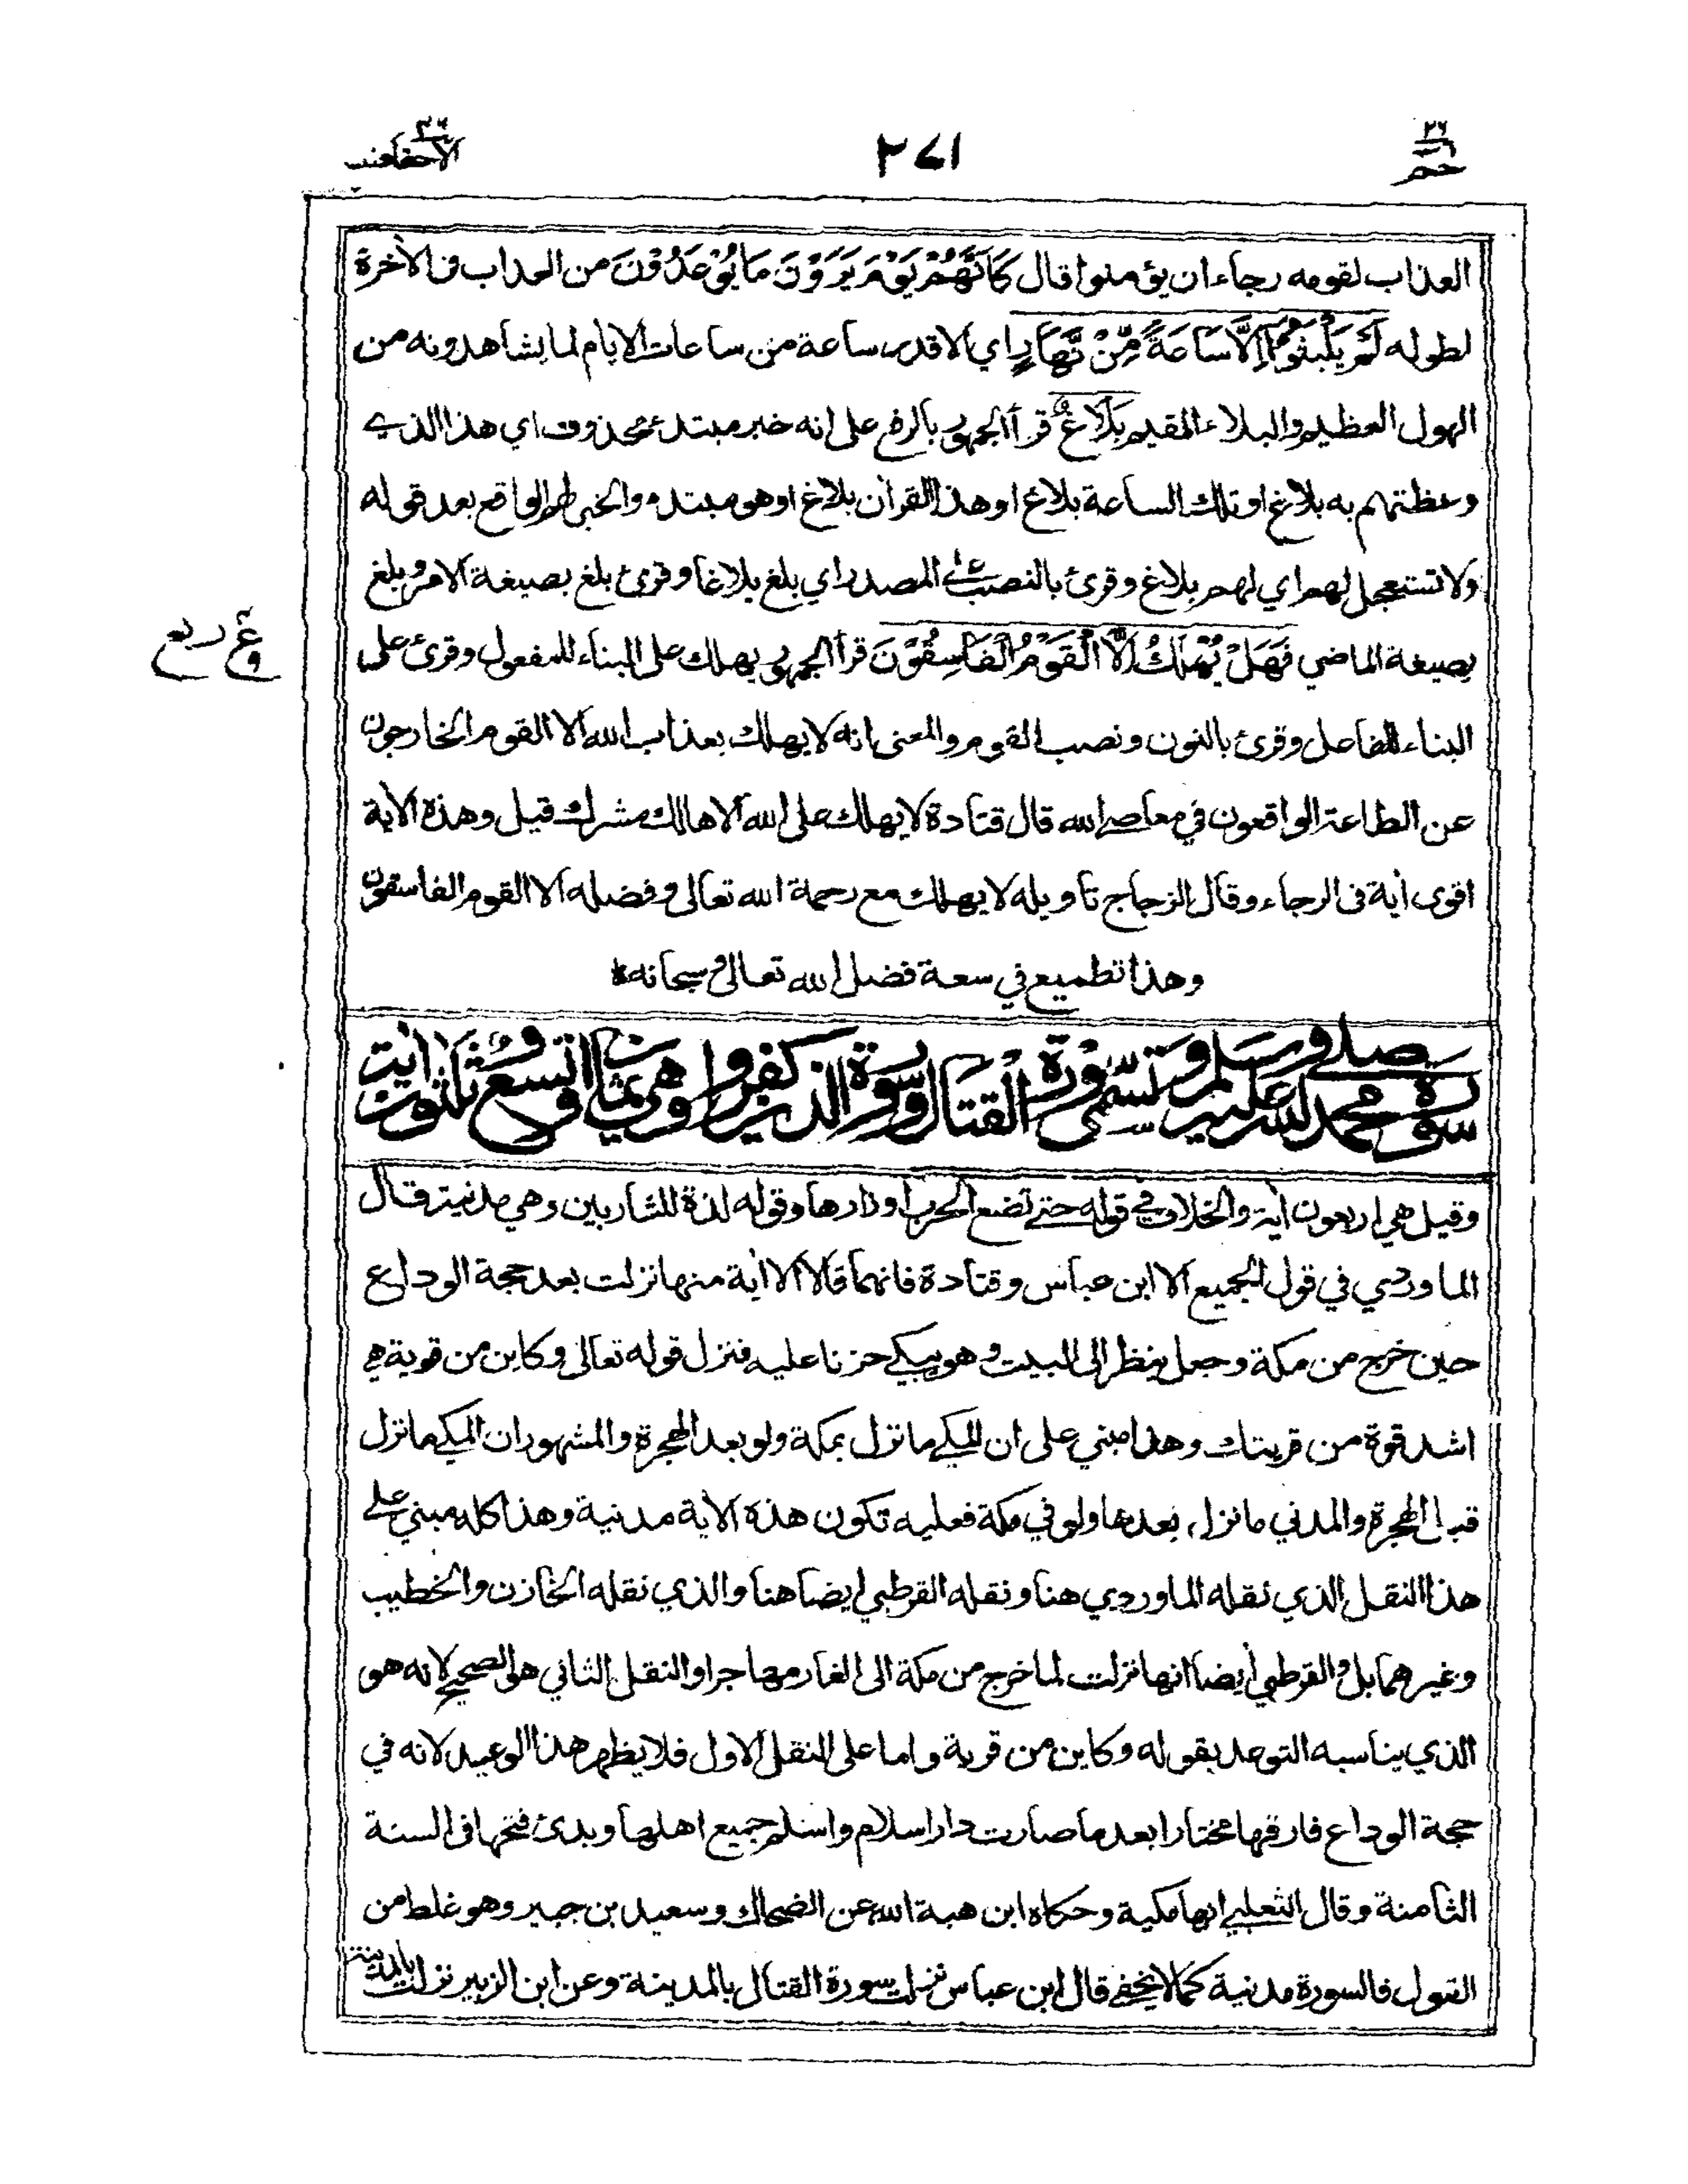 حم ٢٦
٢٧١
الاحقاف ٤٦
العذاب لقومه رجاء ان يؤمنوا قال كَأَنَّهُمْ يَوْمَ يَرَوْنَ مَا يُوْعَدُوْنَ من العذاب فى الاٰخرة
لطوله لَمْ يَلْبَثُوْٓا اِلَّا سَاعَةً مِّنْ نَّهَارٍ اي الا قدر ساعة من ساعات الايام لما يشاهدونه من
الهول العظيم والبلاء المقيم بَلَاغٌ قرأ الجمهور بالرفع على انه خبر مبتدء محذوف اي هذا الذي
وعظتهم به بلاغ او تلك الساعة بلاغ او هذا القراٰن بلاغ او هو مبتدء والخبر لهم الواقع بعد قوله
ولا تستعجل لهم اي لهم بلاغ وقرئ بالنصب على المصدر اي بلغ بلاغا وقرئ بلغ بصيغة الامر وبلغ
بصيغة الماضي فَهَلْ يُهْلَكُ اِلَّا الْقَوْمُ الْفَاسِقُوْنَ قرأ الجمهور يهلك على البناء للمفعول وقرئ على
ربع
البناء للفاعل وقرئ بالنون ونصب القوم والمعنى انه لا يهلك بعذاب الله الا القوم الخارجون
عن الطاعة الواقعون في معاصي الله قال قتادة لا يهلك على الله الا هالك مشرك قيل وهذه الاٰية
اقوى اٰية فى الرجاء وقال الزجاج تاويله لا يهلك مع رحمة الله تعالى وفضله الا القوم الفاسقون
وهذا تطميع في سعة فضل الله تعالى وسبحانه
سورة محمد صلى الله عليه وسلم وتسمى سورة القتال وسورة الذين كفروا وهي ثمان او تسع وثلاثون اٰية
وقيل هي اربعون اٰية والخلاف في قوله حتى تضع الحرب اوزارها وقوله لذة للشاربين وهي مدنية قال
الماوردي في قول الجميع الا ابن عباس وقتادة فانهما قالا الا اٰية منها نزلت بعد حجة الوداع
حين خرج من مكة وجعل ينظر الى البيت وهو يبكي حزنا عليه فنزل قوله تعالى وكاين من قرية هي
اشد قوة من قريتك وهذا مبني على ان المكي ما نزل بمكة ولو بعد الهجرة والمشهور ان المكي ما نزل
قبل الهجرة والمدني ما نزل بعدها ولو في مكة فعليه تكون هذه الاٰية مدنية وهذا كله مبني على
هذا النقل الذي نقله الماوردي هنا ونقله القرطبي ايضا هنا والذي نقله الخازن والخطيب
وغيرهما بل والقرطبي أيضا انها نزلت لما خرج من مكة الى الغار مهاجرا والنقل الثاني هو الصحيح لانه هو
الذي يناسبه التوعد بقوله وكاين من قرية واما على النقل الاول فلا يظهر هذا الوعيد لانه في
حجة الوداع فارقها مختارا بعد ما صارت دار اسلام واسلم جميع اهلها وبدئ فتحها فى السنة
الثامنة وقال الثعلبي انها مكية وحكاه ابن هبة الله عن الضحاك وسعيد بن جبير وهو غلط من
القول فالسورة مدنية كما لا يخفى قال ابن عباس نزلت سورة القتال بالمدينة وعن ابن الزبير نزلت بالمدينة